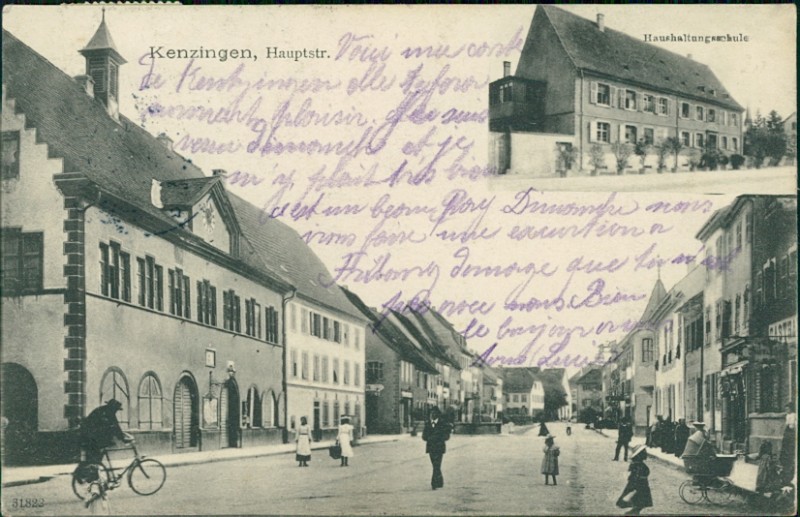 Kenzingen, Hauptstr.
Haushaltungsschule
Voici une carte
de Kentzingen elle te fera
surement plaisir. Je suis
venu dimanche et je
m'y plait très bien
c'est un beau Pays Dimanche nous
irons faire une excurtion a
Fribourg domage que tu
avec nous. Bien
le bonjour
31822